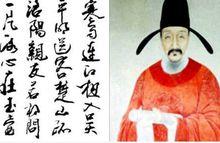 寒雨連江夜入吳
平明送客楚山孤
洛陽親友如相問
一片冰心在玉壺